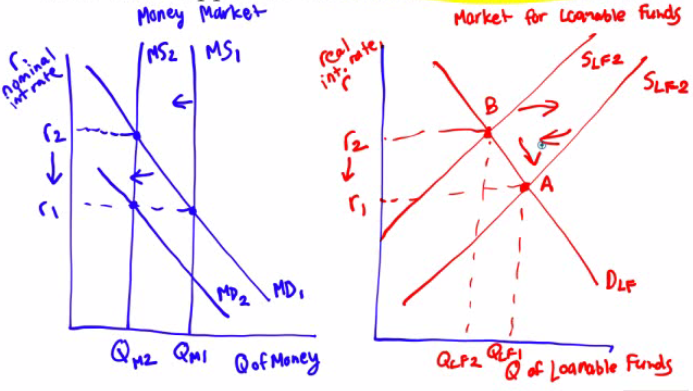 Money Market
r,
nominal
int rate
MS2
MS1
r2
r1
MD2
MD1
QM2
QM1
Q of Money
Market for Loanable Funds
real
int. rate
r
SLF2
SLF2
B
r2
A
r1
DLF
QLF2
QLF1
Q of Loanable Funds